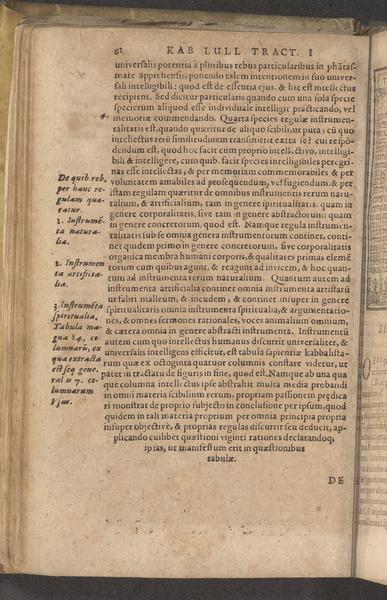 62 KAB LULL TRACT. I
universalis potentia à pluribus rebus particularibus in phãtas-
mate apprehensis, ponendo talem intentionem in suo univer-
sali intelligibili: quod est de essentia ejus, & hic est intellectus
recipiens. Sed dicitur particularis quando cum una sola specie
specierum aliquod esse individuale intelligit practicando, vel
4. memoriæ commendando. Quarta species regulæ instrumen-
talitatis est, quando quæritur de aliquo scibili, ut puta: cũ quo
intellectus rerũ similitudinem transmittit extra se? cui respõ-
dendum est, quod hoc facit cum proprio intellectivo, intelligi-
bili & intelligere, cum quib. facit species intelligibiles peregri-
nas esse intellectas, & per memoriam commemorabiles, & per
voluntatem amabiles ad prosequendum, vel fugiendum. & per
istam regulam quæritur de omnibus instrumentis rerum natu-
ralium, & artificialium, tam in genere spiritualitatis. quam in
genere corporalitatis, sive tam in genere abstractorum, quam
in genere concretorum, quod est. Namque regula instrumen-
talitatis sub se omnia genera instrumentorum continet, conti-
net quidem primo in genere concretorum, sive corporalitatis
organica membra humani corporis, & qualitates primas eleme
torum cum quibus agunt, & reagunt ad invicem, & hoc quan-
tum ad instrumenta rerum naturalium. Quantum autem ad
instrumenta artificialia continet omnia instrumenta artistarũ
ut fabri malleum, & incudem, & continet insuper in genere
spiritualitatis omnia instrumenta spiritualia, & argumentatio-
nes, & omnes sermones rationales, voces animalium omnium,
& cætera omnia in genere abstracti instrumenta. Instrumentũ
autem cum quo intellectus humanus discurrit universaliter, &
universalis intelligens efficitur, est tabula sapientiæ kabbalista-
rum quæ ex octoginta quatuor columnis constare videtur, ut
patet in tractatu de figuris in fine, quod est. Namque ab una qua
que columna intellectus ipse abstrahit multa media probandi
in omni materia scibilium rerum, propriam passionem prędica
ri monstrat de proprio subjecto in conclusione per ipsum, quod
quidem in tali materia proprium per omnia principia propria
insuper objectivè, & proprias regulas discurrit seu deducit, ap-
plicando cuilibet quæstioni viginti rationes declarandoq;
ipsas, ut manifestum erit in quæstionibus
tabulæ.
DE
De quib. reb.
per hanc re-
gulam quæ-
ratur.
1. Instrumē
ta natura-
lia.
2. Instrumen
ta artificia-
lia.
3. Instrumēta
spiritualia.
Tabula ma-
gna 84. co-
lumnarũ, ex
qua extracta
est seq gene.
ral 7. co-
lumnarum